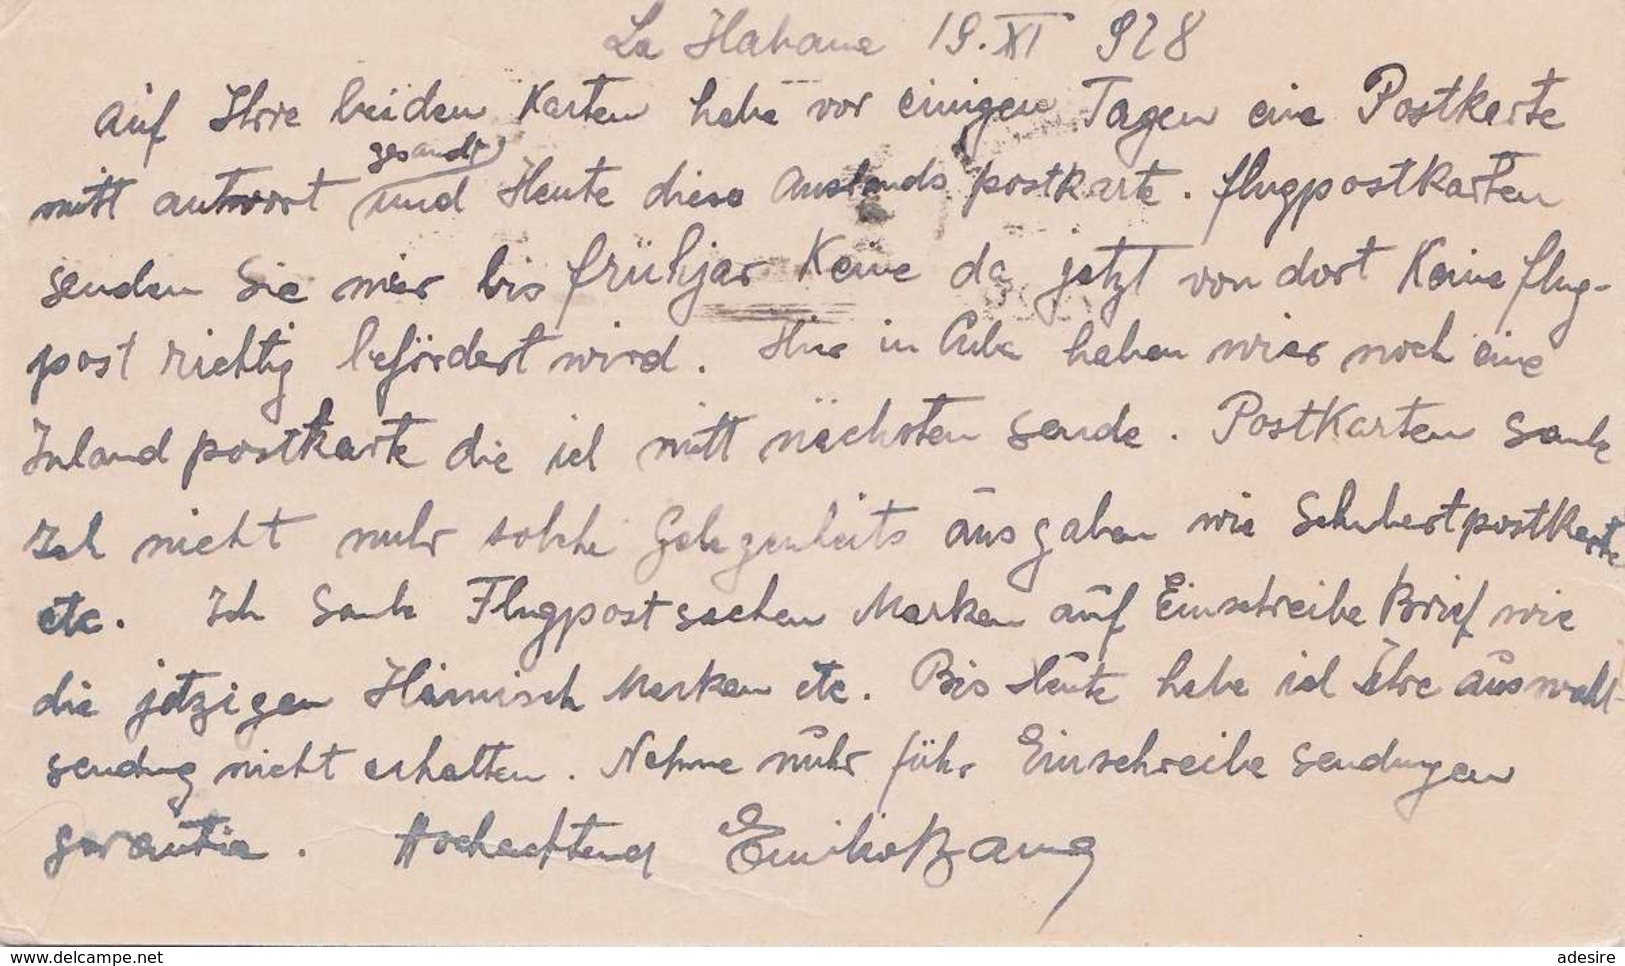 La Habana 19.XI 928
auf Ihre beiden Karten habe vor einigen Tagen eine Postkarte
gesandt
mitt antwort und Heute diese Auslands postkarte. flugpostkarten
senden Sie mier bis frühjar Keine da jetzt von dort Keine flug-
post richtig befördert wird. Hier in Cuba haben wier noch eine
Inland postkarte die ich mitt nächsten sende. Postkarten samle
Ich nicht nuhr solche Gelegenheits ausgaben wie Schubertpostkarte
etc. Ich samle Flugpostsachen Marken auf Einschreibe Brief wie
die jetzigen Hainisch Marken etc. Bis Heute habe ich Ihre auswahl-
sendung nicht erhalten. Nehme nuhr führ Einschreibe sendungen
garantie. Hochachtend Emilio
www.delcampe.net
adesire